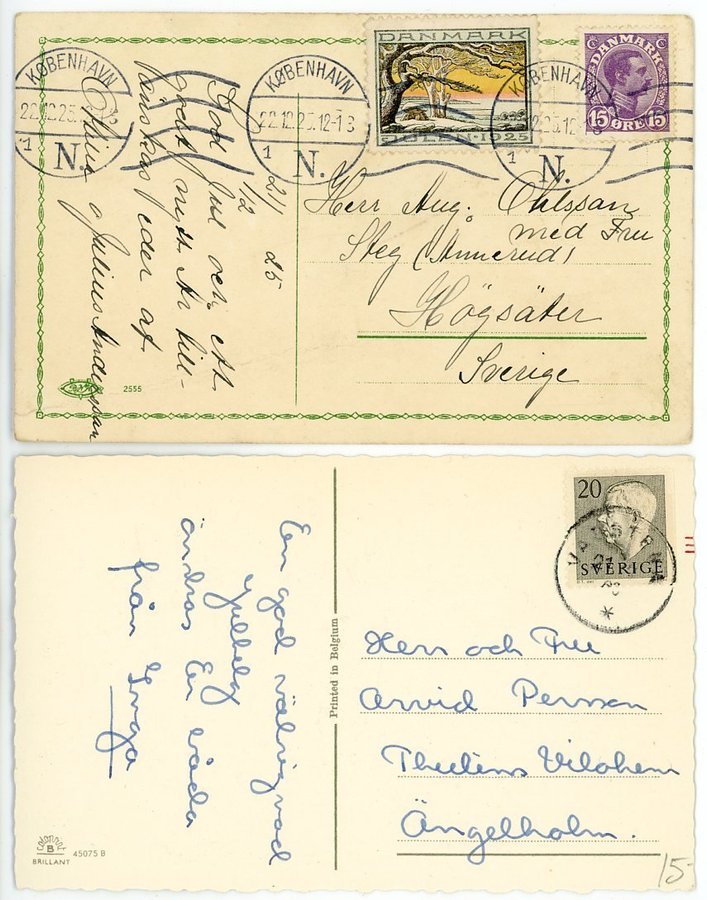 KØBENHAVN
22.12.25.
1 N.
KØBENHAVN
22.12.25.12-1 8
1 N.
KØBENHAVN
1 N.
DANMARK
JULEN·1925
DANMARK
15 ØRE 15
God Jul och ett
godt nytt År till-
önskas eder af
Stina o Julius Andersson
21/12 25
Herr Aug. Ohlssan
med Fru
Steg (Annerud)
Högsäter
Sverige
2555
20
SVERIGE
En god välsignad
Julhelg
önskas Er båda
från Inga
Printed in Belgium
Herr och Fru
Arvid Persson
Thulins Vilohem
Ängelholm.
colorprint
B
BRILLANT
45075 B
15-